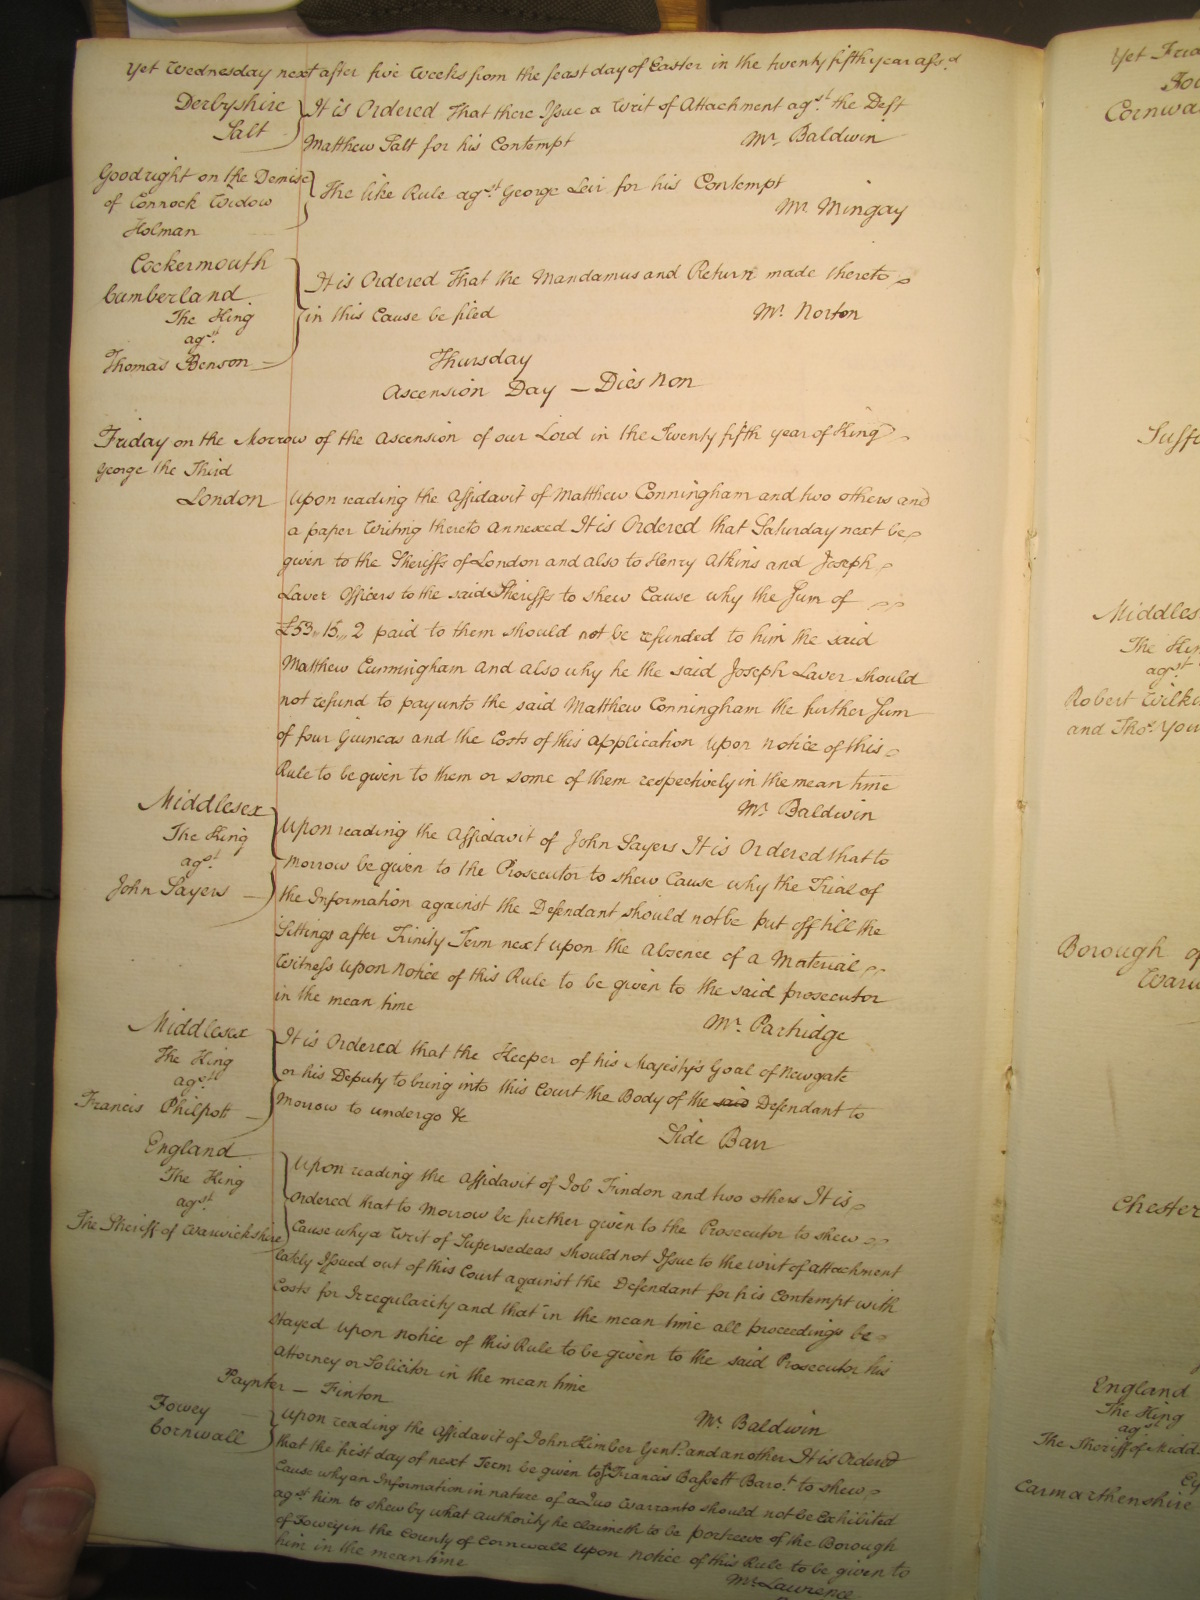 Yet Wednesday next after five Weeks from the feast day of Easter in the twenty fifth year afs.d
Derbyshire
Salt
It is Ordered That there Issue a Writ of Attachment ag.st the Deft
Matthew Salt for his Contempt
Mr. Baldwin
Goodright on the Demise
of Connock Widow
Holman
The like Rule ag.st George Leir for his Contempt
Mr. Mingay
Cockermouth
Cumberland
The King
ag.st
Thomas Benson
It is Ordered That the Mandamus and Return made thereto
in this Cause be filed
Mr. Norton
Thursday
Ascension Day – Dies Non
Friday on the Morrow of the Ascension of our Lord in the Twenty fifth year of King
George the Third
London
Upon reading the Affidavit of Matthew Conningham and two others and
a paper Writing thereto annexed It is Ordered that Saturday next be
given to the Sheriffs of London and also to Henry Atkins and Joseph
Laver Officers to the said Sheriffs to shew Cause why the Sum of
£53„15„2 paid to them should not be refunded to him the said
Matthew Cunningham and also why he the said Joseph Laver should
not refund to pay unto the said Matthew Conningham the further Sum
of four Guineas and the Costs of this Application upon notice of this
Rule to be given to them or some of them respectively in the mean time
Mr. Baldwin
Middlesex
The King
ag.st
John Sayers
Upon reading the Affidavit of John Sayers It is Ordered that to
morrow be given to the Prosecutor to shew Cause why the Trial of
the Information against the Defendant should not be put off till the
Sittings after Trinity Term next upon the absence of a Material
Witness upon notice of this Rule to be given to the said prosecutor
in the mean time
Mr. Partridge
Middlesex
The King
ag.st
Francis Philpott
It is Ordered that the Keeper of his Majesty's Goal of Newgate
or his Deputy to bring into this Court the Body of the said Defendant to
morrow to undergo &c
Side Barr
England
The King
ag.st
The Sheriff of Warwickshire
Upon reading the Affidavit of Job Findon and two others It is
Ordered that to Morrow be further given to the Prosecutor to shew
Cause why a Writ of Supersedeas should not Issue to the writ of attachment
lately Issued out of this Court against the Defendant for his Contempt with
Costs for Irregularity and that in the mean time all proceedings be
stayed upon notice of this Rule to be given to the said Prosecutor his
Attorney or Solicitor in the mean time
Paynter – Finton
Mr. Baldwin
Fowey
Cornwall
Upon reading the Affidavit of John Kimber Gent. and another It is Ordered
that the first day of next Term be given to Sr Francis Bassett Baro.t to shew
Cause why an Information in nature of a Quo Warranto should not be Exhibited
ag.st him to shew by what authority he claimeth to be portreeve of the Borough
of Fowey in the County of Cornwall upon notice of this Rule to be given to
him in the mean time
Mr. Lawrence
Yet Frid
Cornwa
Suffo
Middles
The Kin
ag.st
Robert Wilki
and Tho.s You
Borough of
Warw
Chester
England
The King
ag.st
The Sheriff of Midd
Carmarthenshire